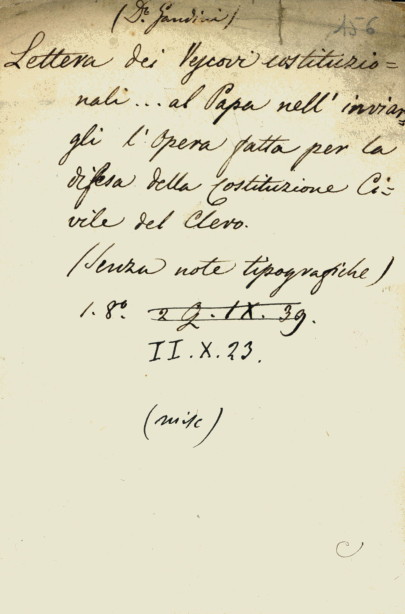 (Dr. Gandini) 156
Lettera dei Vescovi costituzio=
nali... al Papa nell' inviar
gli l' Opera fatta per la
difesa della Costituzione Ci=
vile del Clero.
(Senza note tipografiche)
1. 8º. 2 Q. IX. 39.
II. X. 23.
(misc)